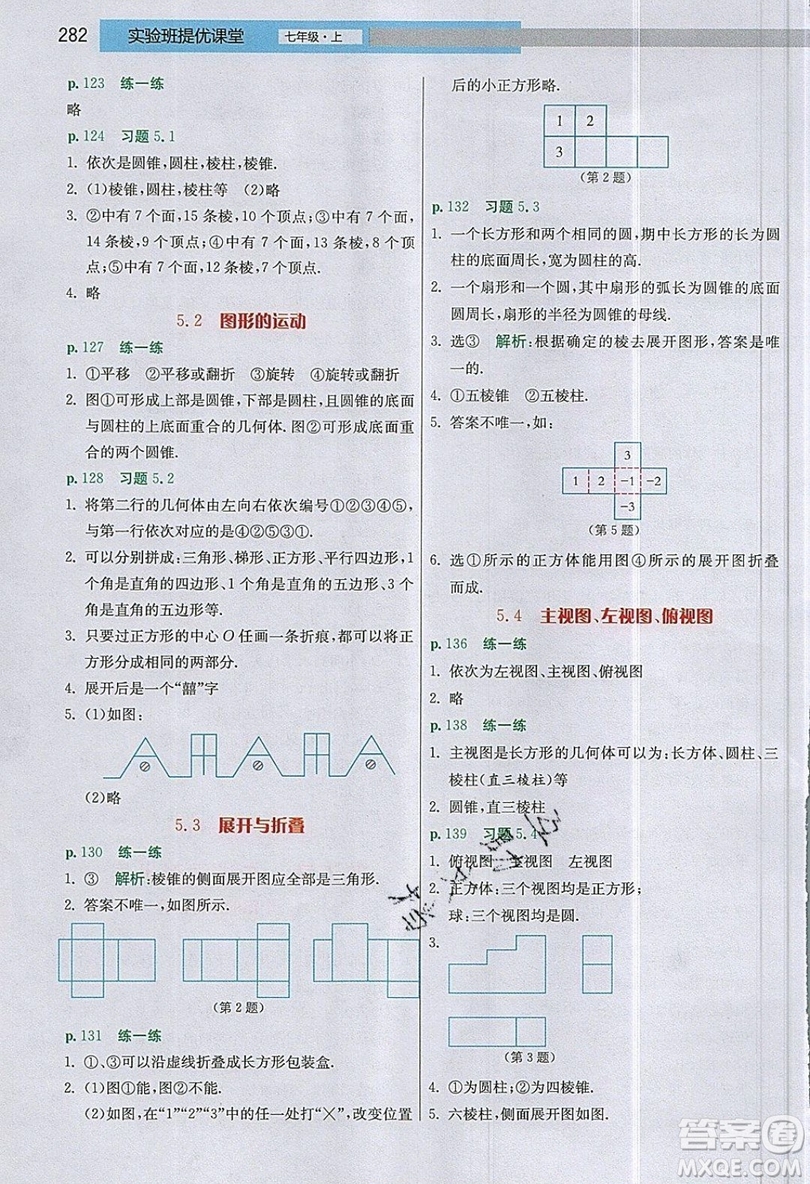 282 实验班提优课堂 七年级·上
p.123 练一练
略
p.124 习题 5.1
1. 依次是圆锥,圆柱,棱柱,棱锥.
2. (1)棱锥,圆柱,棱柱等 (2)略
3. ②中有 7 个面,15 条棱,10 个顶点;③中有 7 个面,
14 条棱,9 个顶点;④中有 7 个面,12 条棱,7 个顶
点;⑤中有 7 个面,12 条棱,7 个顶点.
4. 略
5.2 图形的运动
p.127 练一练
1. ①平移 ②平移或翻折 ③旋转 ④平移或旋转
2. 图①可形成上部是圆锥,下部是圆柱,且圆锥的底面
与圆柱的上底面重合的几何体.图②可形成底面重
合的两个圆锥.
p.128 习题 5.2
1. 将第二行的几何体由左向右依次编号①②③④⑤,
与第一行依次对应的是④②⑤③①.
2. 可以分别拼成:三角形、梯形、正方形、平行四边形,1
个是直角的四边形、1 个是直角的五边形、3 个
角是直角的五边形、六边形.
3. 只要过正方形的中心 O 任画一条折痕,都可以将正
方形分成相同的两部分.
4. 展开后是一个“囍”字
5. (1)如图:
(2)略
5.3 展开与折叠
p.130 练一练
1. ③ 解析:棱锥的侧面展开图应全部是三角形.
2. 答案不唯一,如图所示.
(第 2 题)
p.131 练一练
1. ①、③可以沿虚线折叠成长方形包装盒.
2. (1)图①能,图②不能.
(2)如图,在“1”“2”“3”中的任一处打“╳”,改变位置
后的小正方形略.
1 2
3
(第 2 题)
p.132 习题 5.3
1. 一个长方形和两个相同的圆,期中长方形的长为圆
柱的底面周长,宽为圆柱的高.
2. 一个扇形和一个圆,其中扇形的弧长为圆锥的底面
圆周长,扇形的半径为圆锥的母线.
3. 选③ 解析:根据确定的棱去展开图形,答案是唯
一的.
4. ①五棱锥 ②五棱柱
5. 答案不唯一,如:
3
1 2 -1 -2
-3
(第 5 题)
6. 选①所示的正方体能用图④所示的展开图折叠
而成.
5.4 主视图、左视图、俯视图
p.136 练一练
1. 依次为左视图、主视图、俯视图
2. 略
p.138 练一练
1. 主视图是长方形的几何体可以为:长方体、圆柱、三
棱柱(直三棱柱)等
2. 圆锥,直三棱柱
p.139 习题 5.4
1. 俯视图 主视图 左视图
2. 正方体:三个视图均是正方形;
球:三个视图均是圆.
3.
(第 3 题)
4. ①为圆柱;②为四棱锥.
5. 六棱柱,侧面展开图如图.
答案圈
MXQE.COM